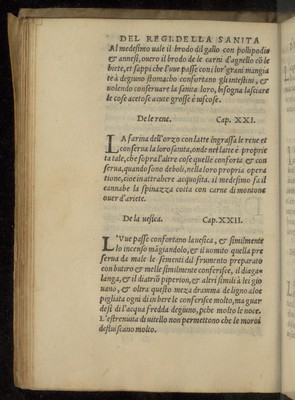 DEL REGI. DELLA SANITA
Al medesimo uale il brodo dil gallo con polipodio
& annesi, ouero il brodo de le carni d'agnello cō le
biete, et sappi che l'uue passe con i lor' grani mangia
te à degiuno stomacho confortano gli intestini, &
uolendo conseruare la sanita loro, bisogna lasciare
le cose acetose acute grosse è uiscose.
De le rene. Cap. XXI.
LA farina dell'orzo con latte ingrassa le rene et
conserua la loro sanita, onde nel latte è proprie
ta tale, che sopra l'altre cose quelle conforta & con
serua, quando sono deboli, nella loro propria opera
tione, cioe in attrahere acquosita. il medesimo fa il
cannabe la spinazza cotta con carne di montone
ouer d'ariete.
De la uesica. Cap. XXII.
L'Vue passe confortano la uesica, & similmente
lo incenso māgiandolo, & il uomito quella pre
serua da male le sementi dil frumento preparato
con butiro & melle similmente conferisce, il diaga
langa, & il diatriō piperion, & altri simili à lei gio
uano, & oltra questo meza dramma de ligno aloe
pigliata ogni di in bere le conferisce molto, ma guar
desi d'l acqua fredda degiuno, pche molto le noce.
L'estrenuita di uitello non permettono che le moroi
destuiscano molto.